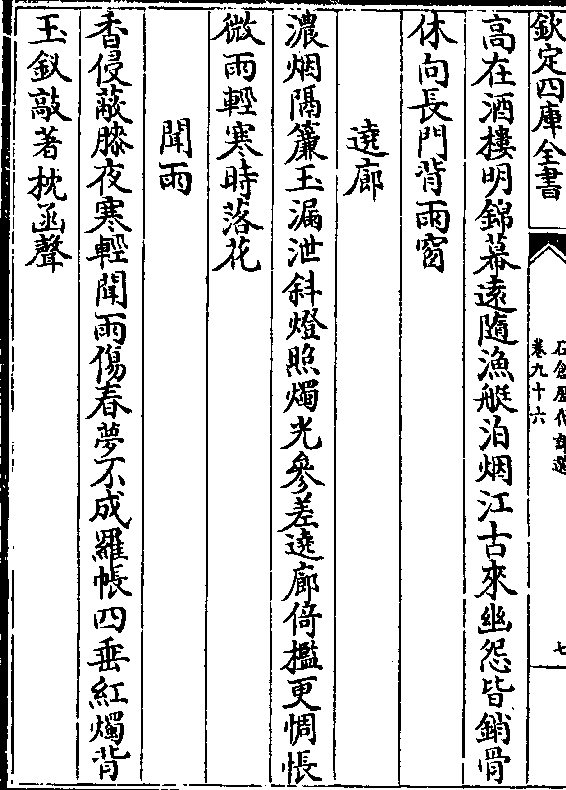 欽定四庫全書
石倉歷代詩選
卷九十六
七
高在酒樓明錦幕遠隨漁艇泊烟江古來幽怨皆銷骨
休向長門背雨窗
遶廊
濃烟隔簾玉漏泄斜燈照燭光參差遶廊倚檻更惆悵
微雨輕寒時落花
聞雨
香侵蔽膝夜寒輕聞雨傷春夢不成羅帳四垂紅燭背
玉釵敲著枕函聲